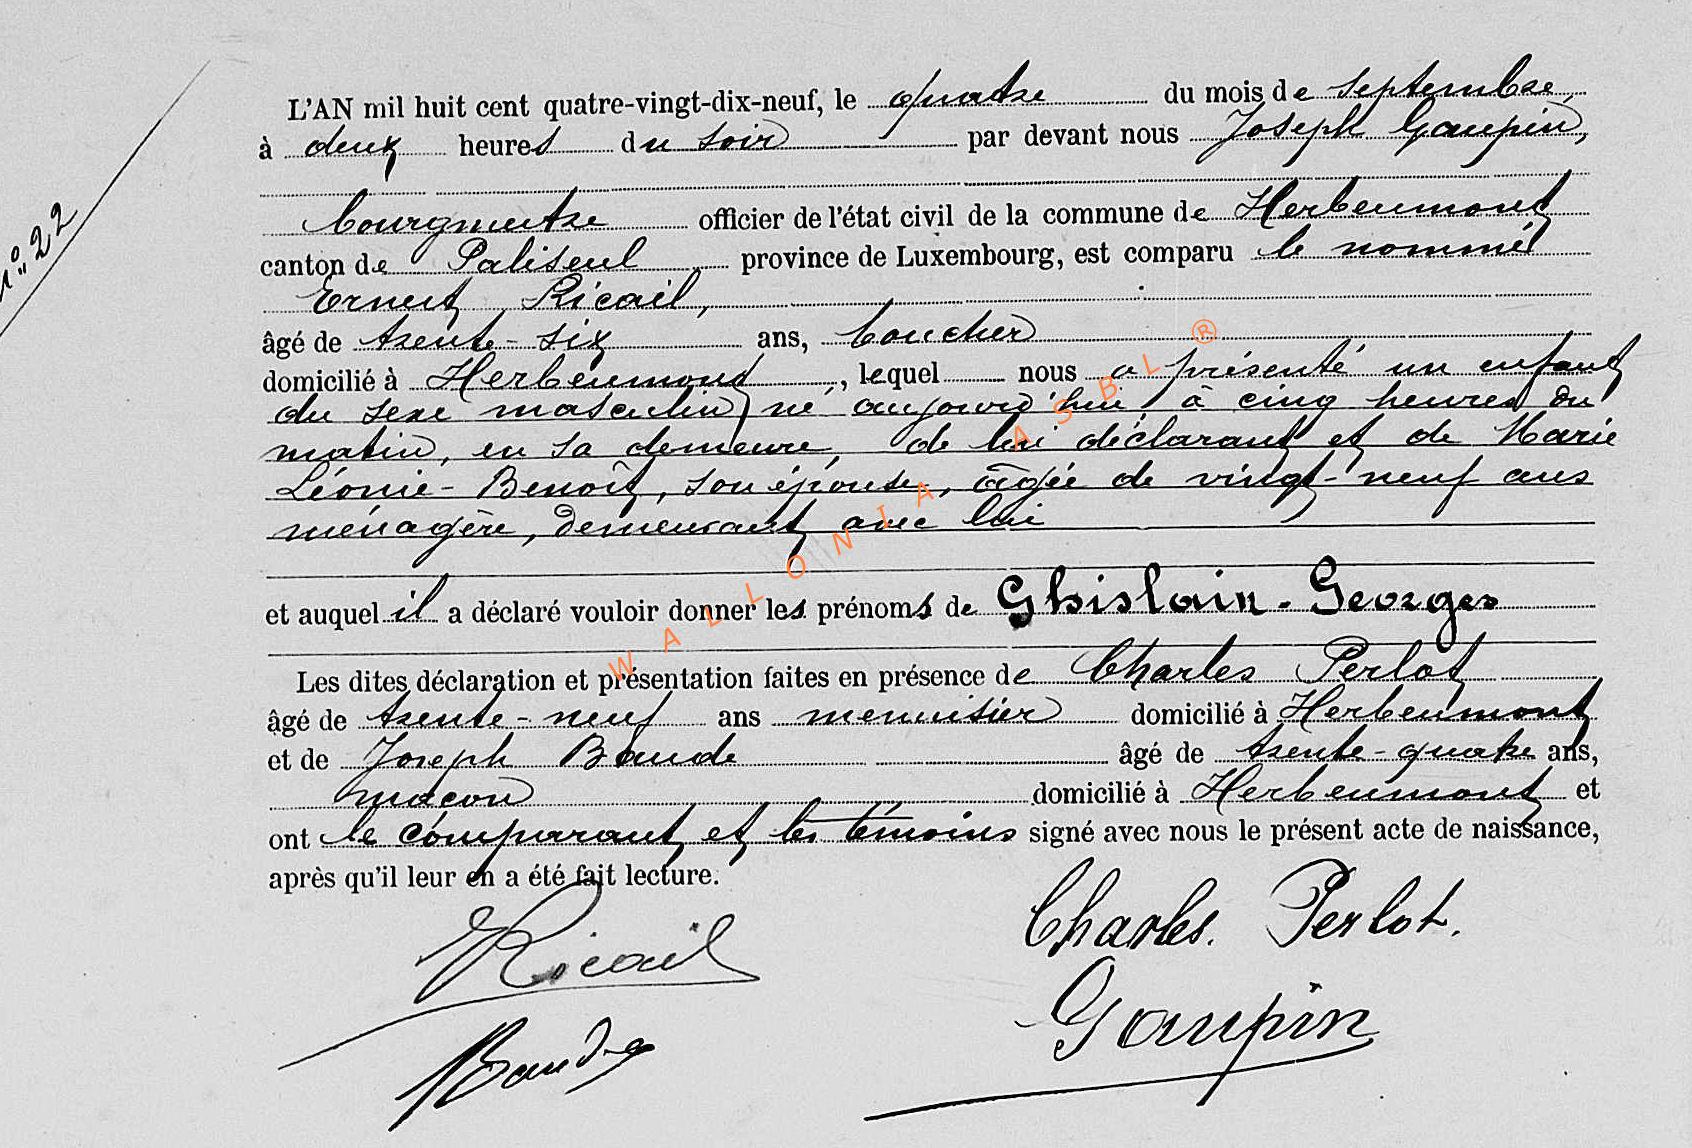 N° 22
L'AN mil huit cent quatre-vingt-dix-neuf, le quatre du mois de septembre,
à deux heures du soir par devant nous Joseph Gaupin,
bourgmestre officier de l'état civil de la commune de Herbeumont
canton de Paliseul province de Luxembourg, est comparu le nommé
Ernest Ricail,
âgé de trente-six ans, boucher
domicilié à Herbeumont, lequel nous a présenté un enfant
du sexe masculin, né aujourd'hui, à cinq heures du
matin, en sa demeure, de lui déclarant et de Marie
Léonie-Benoît, son épouse, âgée de vingt-neuf ans
ménagère, demeurant avec lui
et auquel il a déclaré vouloir donner les prénoms de Ghislain-Georges
Les dites déclaration et présentation faites en présence de Charles Perlot
âgé de trente-neuf ans menuisier domicilié à Herbeumont
et de Joseph Baude âgé de trente-quatre ans,
maçon domicilié à Herbeumont et
ont le comparant et les témoins signé avec nous le présent acte de naissance,
après qu'il leur en a été fait lecture.
ERicail
Charles. Perlot.
Baude
Gaupin
WALLONIA ASBL ®